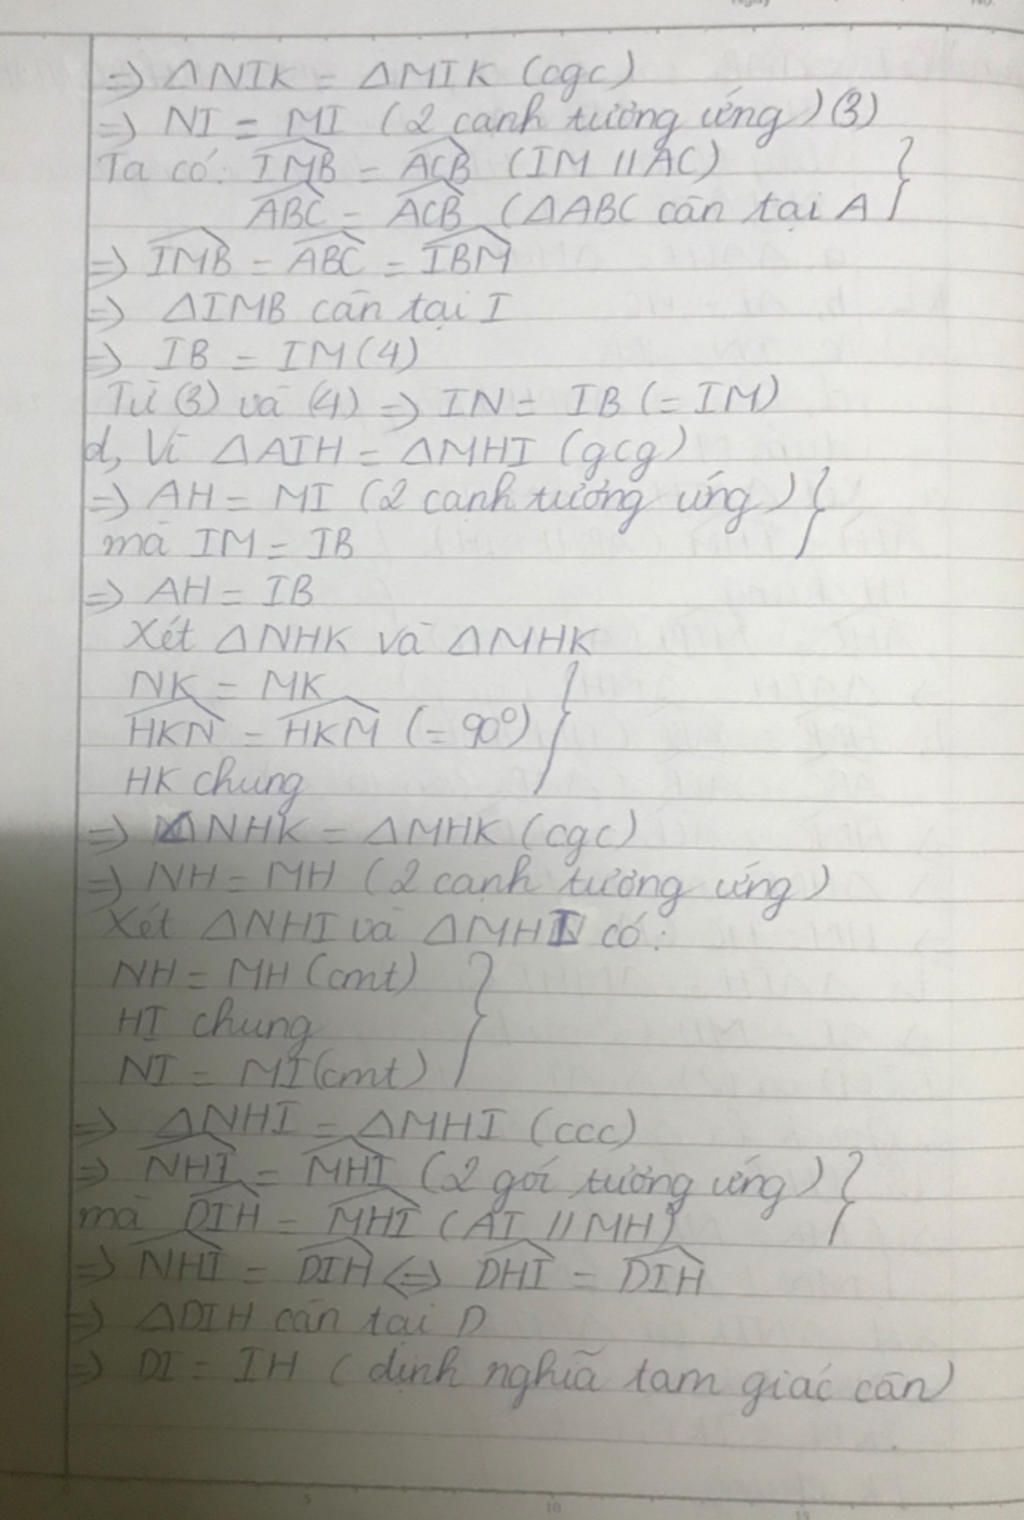 => ΔNIK = ΔMIK (cgc)
=> NI = MI (2 cạnh tương ứng) (3)
Ta có: $\widehat{IMB}$ = $\widehat{ACB}$ (IM // AC)
$\widehat{ABC}$ = $\widehat{ACB}$ (ΔABC cân tại A)
=> $\widehat{IMB}$ = $\widehat{ABC}$ = $\widehat{IBM}$
=> ΔIMB cân tại I
=> IB = IM (4)
Từ (3) và (4) => IN = IB (= IM)
d, Vì ΔAIH = ΔMHI (gcg)
=> AH = MI (2 cạnh tương ứng)
mà IM = IB
=> AH = IB
Xét ΔNHK và ΔMHK
NK = MK
$\widehat{HKN}$ = $\widehat{HKM}$ (= 90°)
HK chung
=> ΔNHK = ΔMHK (cgc)
=> NH = MH (2 cạnh tương ứng)
Xét ΔNHI và ΔMHI có:
NH = MH (cmt)
HI chung
NI = MI (cmt)
=> ΔNHI = ΔMHI (ccc)
=> $\widehat{NHI}$ = $\widehat{MHI}$ (2 gói tương ứng)
mà $\widehat{DIH}$ = $\widehat{MHI}$ (AI // MH)
=> $\widehat{NHI}$ = $\widehat{DIH}$ <=> $\widehat{DHI}$ = $\widehat{DIH}$
=> ΔDIH cân tại D
=> DI = IH (định nghĩa tam giác cân)
5
10